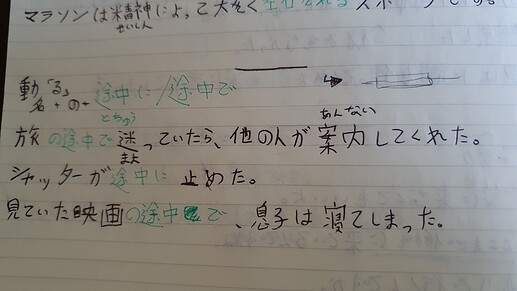 マラソンは精神によって大きく左右されるスポーツである
せいしん
動「る」
名+の+途中に/途中で
とちゅう
あんない
旅の途中で迷っていたら、他の人が案内してくれた。
まよ
シャッターが途中に止めた。
見ていた映画の途中で、息子は寝てしまった。